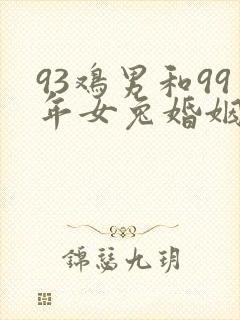 93鸡男和99
年女兔婚姻
锦瑟九玥